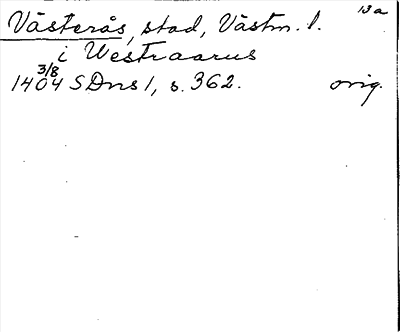 13a
Västerås, stad, Västm. l.
i Westraarus
3/8
1404 SDns 1, s. 362. orig.